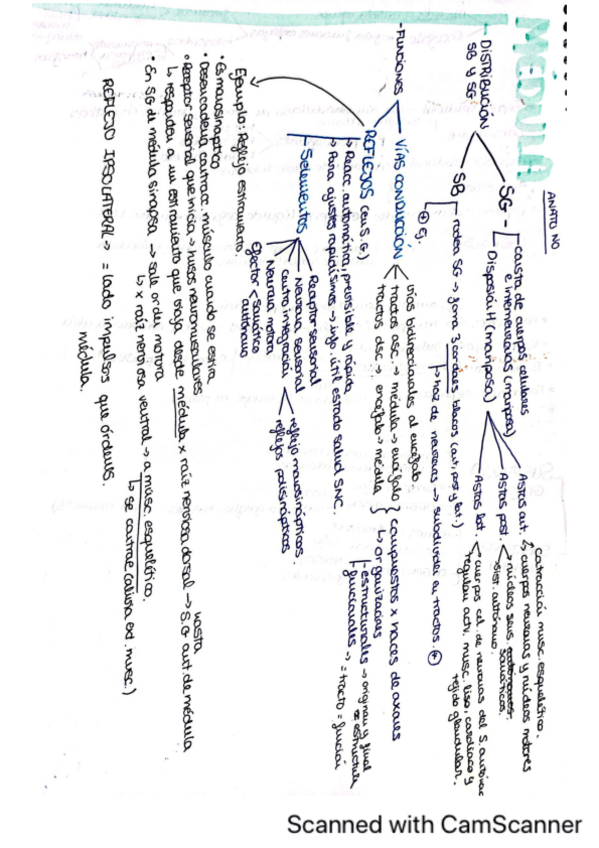 MÉDULA
ANATO NO
- DISTRIBUCIÓN SB y SG
SG - consta de cuerpos celulares e interneuronas (mariposa)
Disposición H (mariposa)
Astas ant. → cuerpos neuronas y núcleos motores
Contracción musc. esquelético.
Astas post. → núcleos sens. somáticos.
→ sist. autónomo.
Astas lat. → cuerpos cel. de neuronas del S. autónomo
regulan activ. musc. liso, cardíaco y tejido glandular.
SB - rodea SG → forma 3 cordones blancos (ant, pos y lat.)
↳ haz de neuronas → subdividen en tractos. +
+ g.
- FUNCIONES
VÍAS CONDUCCIÓN
vías bidireccionales al encéfalo
tractos asc. → médula → encéfalo
tractos dsc. → encéfalo → médula
compuestos x haces de axones
↳ organizaciones
- estructurales → origen y final = estructura
- funcionales → = tracto = función
REFLEJOS (en S.G.)
↳ Reacc. automática, previsible y rápida
↳ Para ajustes rapidísimos → útil estado salud SNC.
5 elementos
Receptor sensorial
Neurona sensorial
Centro integración
reflejo monosinápticos.
reflejos polisinápticos
Neurona motora
Efector
somático
autónomo
Ejemplo: Reflejo estiramiento
• es monosináptico
• Desencadena contracc. músculo cuando se estira.
• Receptor sensorial que inicia → husos neuromusculares
↳ responden a un estiramiento que viaja desde médula x raíz nerviosa dorsal → S.G ant. de médula
hasta
• En SG de médula sinapsa → sale orden motora
↳ x raíz nerviosa ventral → a musc. esquelético.
↳ se contrae
REFLEJO IPSOLATERAL → = lado impulsos que órdenes.
médula.
Scanned with CamScanner